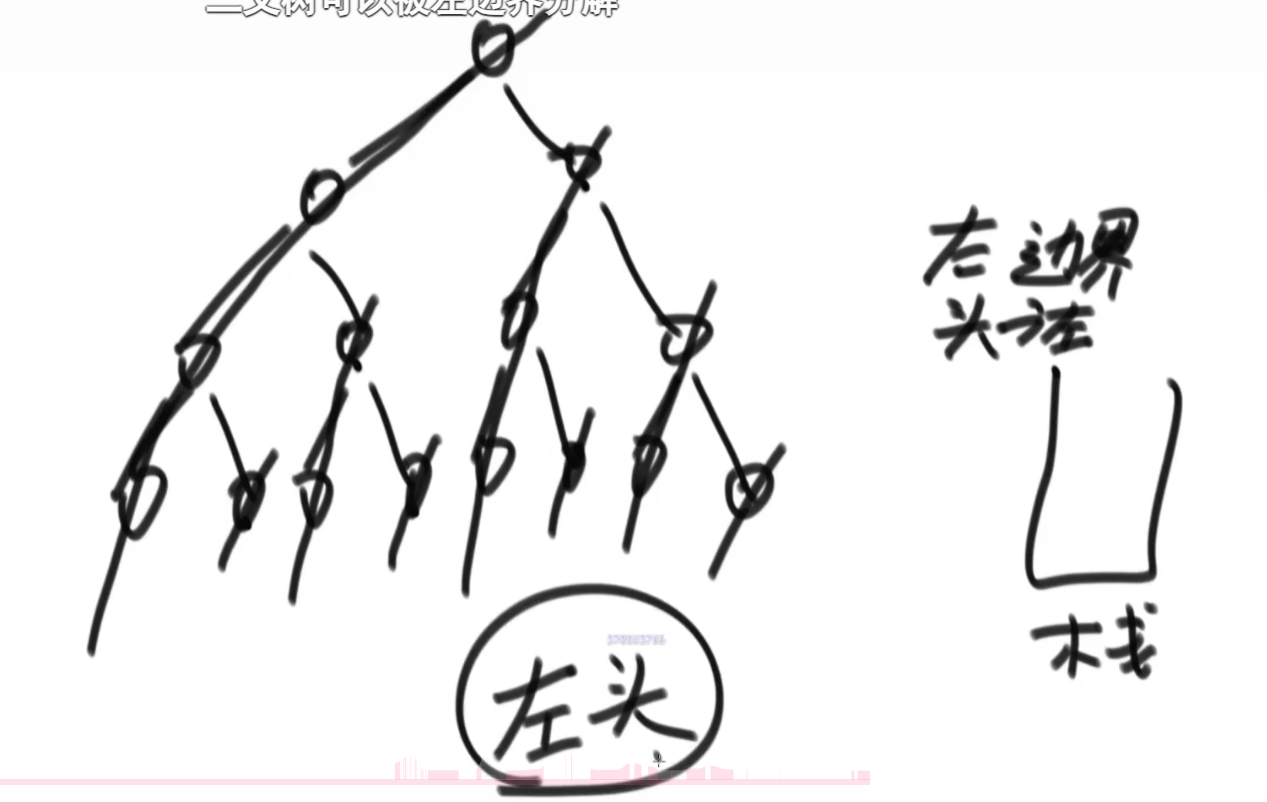 二叉树可以被左边界分解
右边界
头方法
栈
左头